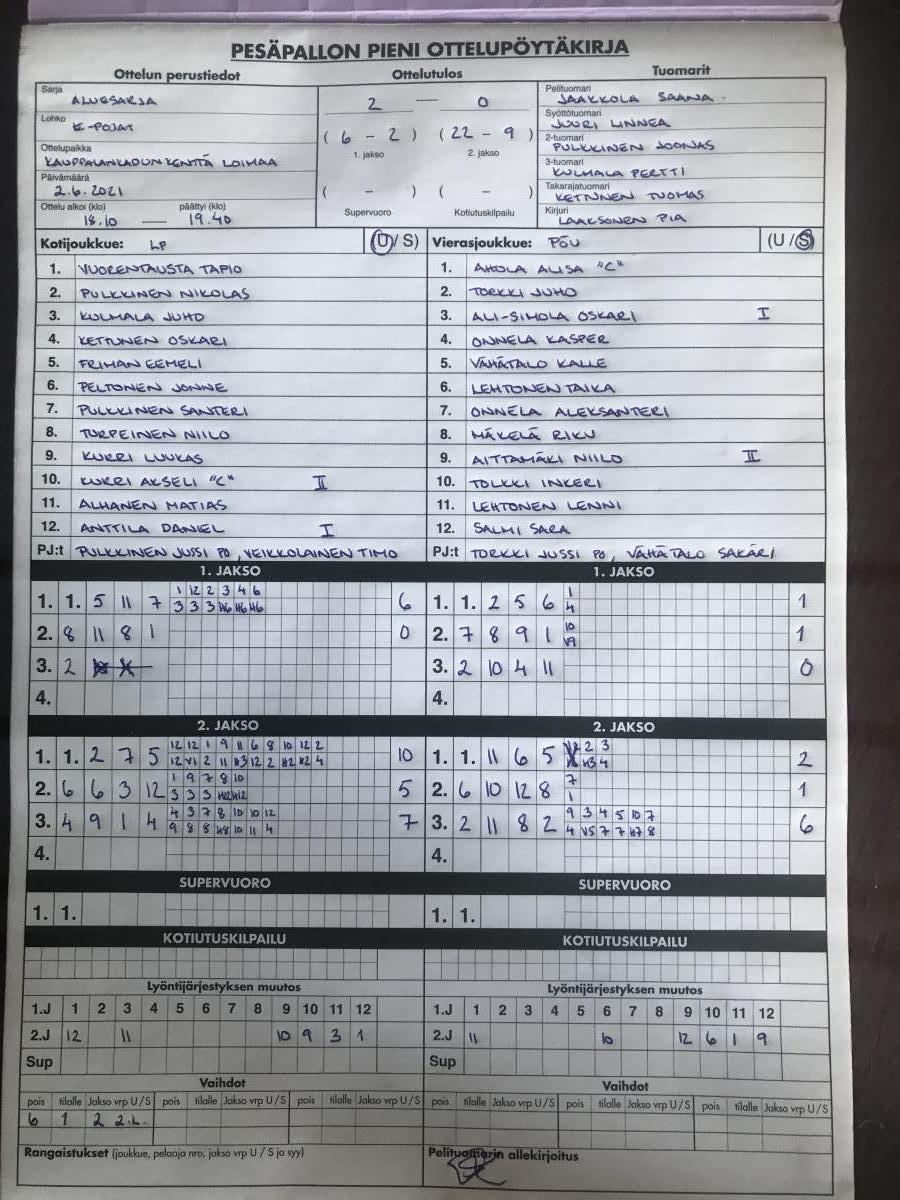 PESÄPALLON PIENI OTTELUPÖYTÄKIRJA
Ottelun perustiedot Ottelutulos Tuomarit
Sarja ALUESARJA
Lohko E-POJAT
Ottelupaikka KAUPPALANKADUN KENTTÄ LOIMAA
Päivämäärä 2.6.2021
Ottelu alkoi (klo) 18.10 — päättyi (klo) 19.40
2 — 0
( 6 - 2 ) ( 22 - 9 )
1. jakso 2. jakso
( - ) ( - )
Supervuoro Kotiutuskilpailu
Pelituomari JAAKKOLA SAANA
Syöttötuomari JUURI LINNEA
2-tuomari PULKKINEN JOONAS
3-tuomari KULMALA PERTTI
Takarajatuomari KETTUNEN TUOMAS
Kirjuri LAAKSONEN PIA
Kotijoukkue: LP (U / S) Vierasjoukkue: PöU (U / S)
1. VUORENTAUSTA TAPIO 1. AHOLA ALISA "C"
2. PULKKINEN NIKOLAS 2. TORKKI JUHO
3. KULMALA JUHO 3. ALI-SIMOLA OSKARI I
4. KETTUNEN OSKARI 4. ONNELA KASPER
5. FRIMAN EEMELI 5. VÄHÄTALO KALLE
6. PELTONEN JONNE 6. LEHTONEN TAIKA
7. PULKKINEN SANTERI 7. ONNELA ALEKSANTERI
8. TURPEINEN NIILO 8. MÄKELÄ RIKU
9. KURRI LUUKAS 9. AITTAMÄKI NIILO II
10. KURRI AKSELI "C" II 10. TOLKKI INKERI
11. ALHANEN MATIAS 11. LEHTONEN LENNI
12. ANTTILA DANIEL I 12. SALMI SARA
PJ:t PULKKINEN JUSSI PO, VEIKKOLAINEN TIMO PJ:t TORKKI JUSSI PO, VÄHÄTALO SAKARI
1. JAKSO 1. JAKSO
1 12 2 3 4 6 1
1. 1. 5 11 7 3 3 3 H6 H6 H6 6 1. 1. 2 5 6 4 1
2. 8 11 8 1 0 2. 7 8 9 1 10 V9 1
3. 2 3. 2 10 4 11 0
4. 4.
2. JAKSO 2. JAKSO
12 12 1 9 11 6 8 10 12 2 2 3
1. 1. 2 7 5 12 V1 2 11 H3 12 2 H2 H2 4 10 1. 1. 11 6 5 H3 4 2
1 9 7 8 10 7
2. 6 6 3 12 3 3 3 H12 H12 5 2. 6 10 12 8 1 1
4 3 7 8 10 10 12 9 3 4 5 10 7
3. 4 9 1 4 9 8 8 H8 10 11 4 7 3. 2 11 8 2 4 V5 7 7 H7 8 6
4. 4.
SUPERVUORO SUPERVUORO
1. 1. 1. 1.
KOTIUTUSKILPAILU KOTIUTUSKILPAILU
Lyöntijärjestyksen muutos Lyöntijärjestyksen muutos
1.J 1 2 3 4 5 6 7 8 9 10 11 12 1.J 1 2 3 4 5 6 7 8 9 10 11 12
2.J 12 11 10 9 3 1 2.J 11 10 12 6 1 9
Sup Sup
Vaihdot Vaihdot
pois tilalle Jakso vrp U / S pois tilalle Jakso vrp U / S pois tilalle Jakso vrp U / S pois tilalle Jakso vrp U / S pois tilalle Jakso vrp U / S pois tilalle Jakso vrp U / S
6 1 2 2.L.
Rangaistukset (joukkue, pelaaja nro, jakso vrp U / S ja syy) Pelituomarin allekirjoitus